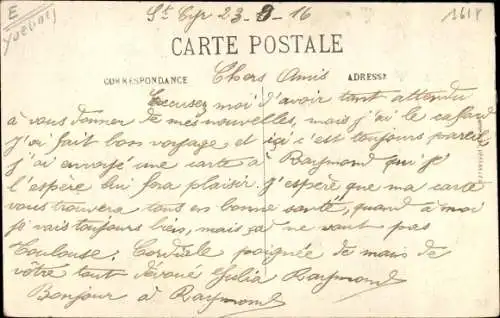 E
Yvelines
St Cyr 23-8-16
1618
CARTE POSTALE
CORRESPONDANCE
Chers Amis
ADRESSE
Excusez moi d'avoir tant attendu
à vous donner de mes nouvelles, mais j'ai le cafard
j'ai fait bon voyage et ici c'est toujours pareil
j'ai envoyé une carte à Raymond qui je
l'espère lui fera plaisir. J'espère que ma carte
vous trouvera tous en bonne santé, quand à moi
je vais toujours bien, mais ça ne vaut pas
Toulouse. Cordiale poignée de main de
vôtre tout dévoué Julia Raymond
Bonjour à Raymond